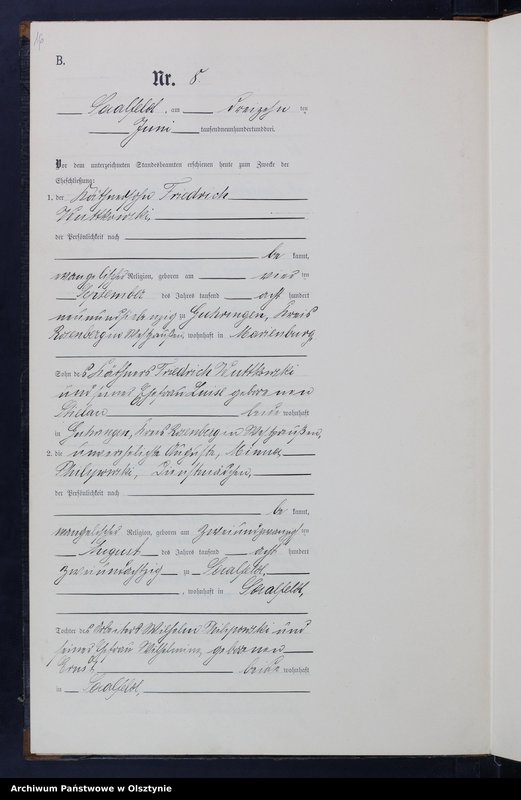 B.
Nr. 8.
Saalfeld, am Dreizehn ten
Juni tausendneunhundertunddrei.
Vor dem unterzeichneten Standesbeamten erschienen heute zum Zwecke der
Eheschließung:
1. der Käthnersohn Friedrich
Kuttkowski,
der Persönlichkeit nach
be kannt,
evangelischer Religion, geboren am vier ten
September des Jahres tausend acht hundert
neunundsiebenzig zu Guhringen, Kreis
Rosenberg in Westpreußen, wohnhaft in Marienburg
Sohn des Käthners Friedrich Kuttkowski
und seiner Ehefrau Luise geborenen
beide wohnhaft
in Guhringen, Kreis Rosenberg in Westpreußen,
2. die unverehelichte Auguste, Minna
Dienstmädchen,
der Persönlichkeit nach
be kannt,
evangelischer Religion, geboren am zweiundzwanzig ten
August des Jahres tausend acht hundert
zweiundachtzig zu Saalfeld,
, wohnhaft in Saalfeld,
Tochter des Arbeiters Wilhelm und
seiner Ehefrau Wilhelmine, geborenen
Ernst beide wohnhaft
in Saalfeld,
Archiwum Państwowe w Olsztynie